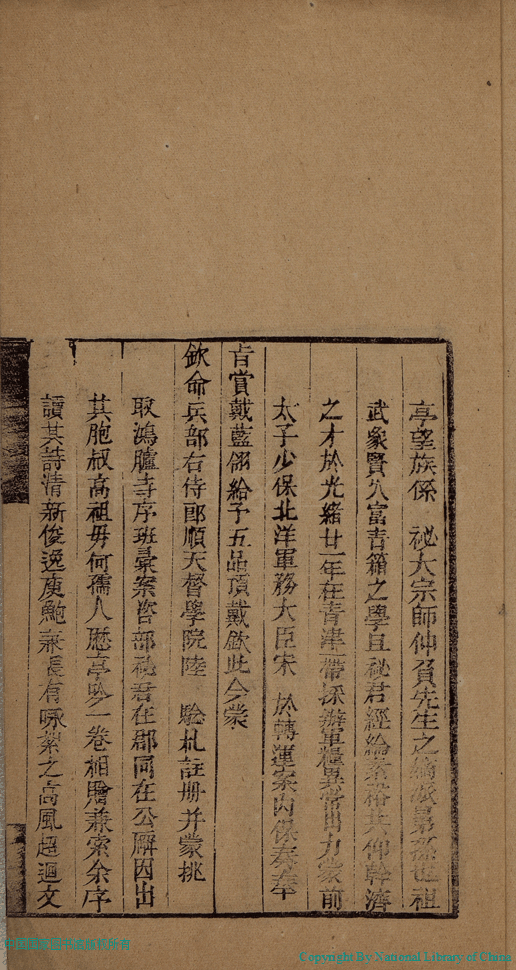 亭望族係　祕大宗師仲負先生之嫡派最孫世祖
武象賢久富青箱之學且祕君經綸素裕共仰幹濟
之才於光緒廿一年在青津一帶採辦軍糧異常出力蒙前
太子少保北洋軍務大臣宋　於轉運案內保奏奉
旨賞戴藍翎給予五品頂戴欽此今蒙
欽命兵部右侍郎順天督學院陸　驗札註册并蒙挑
取鴻臚寺序班彙案咨部祕君在郡同在公廨因出
其胞叔高祖毋何孺人懸亭吟一卷相贈兼索余序
讀其詩清新俊逸庾鮑兼長有咏絮之高風超迴文
Copyright By National Library of China